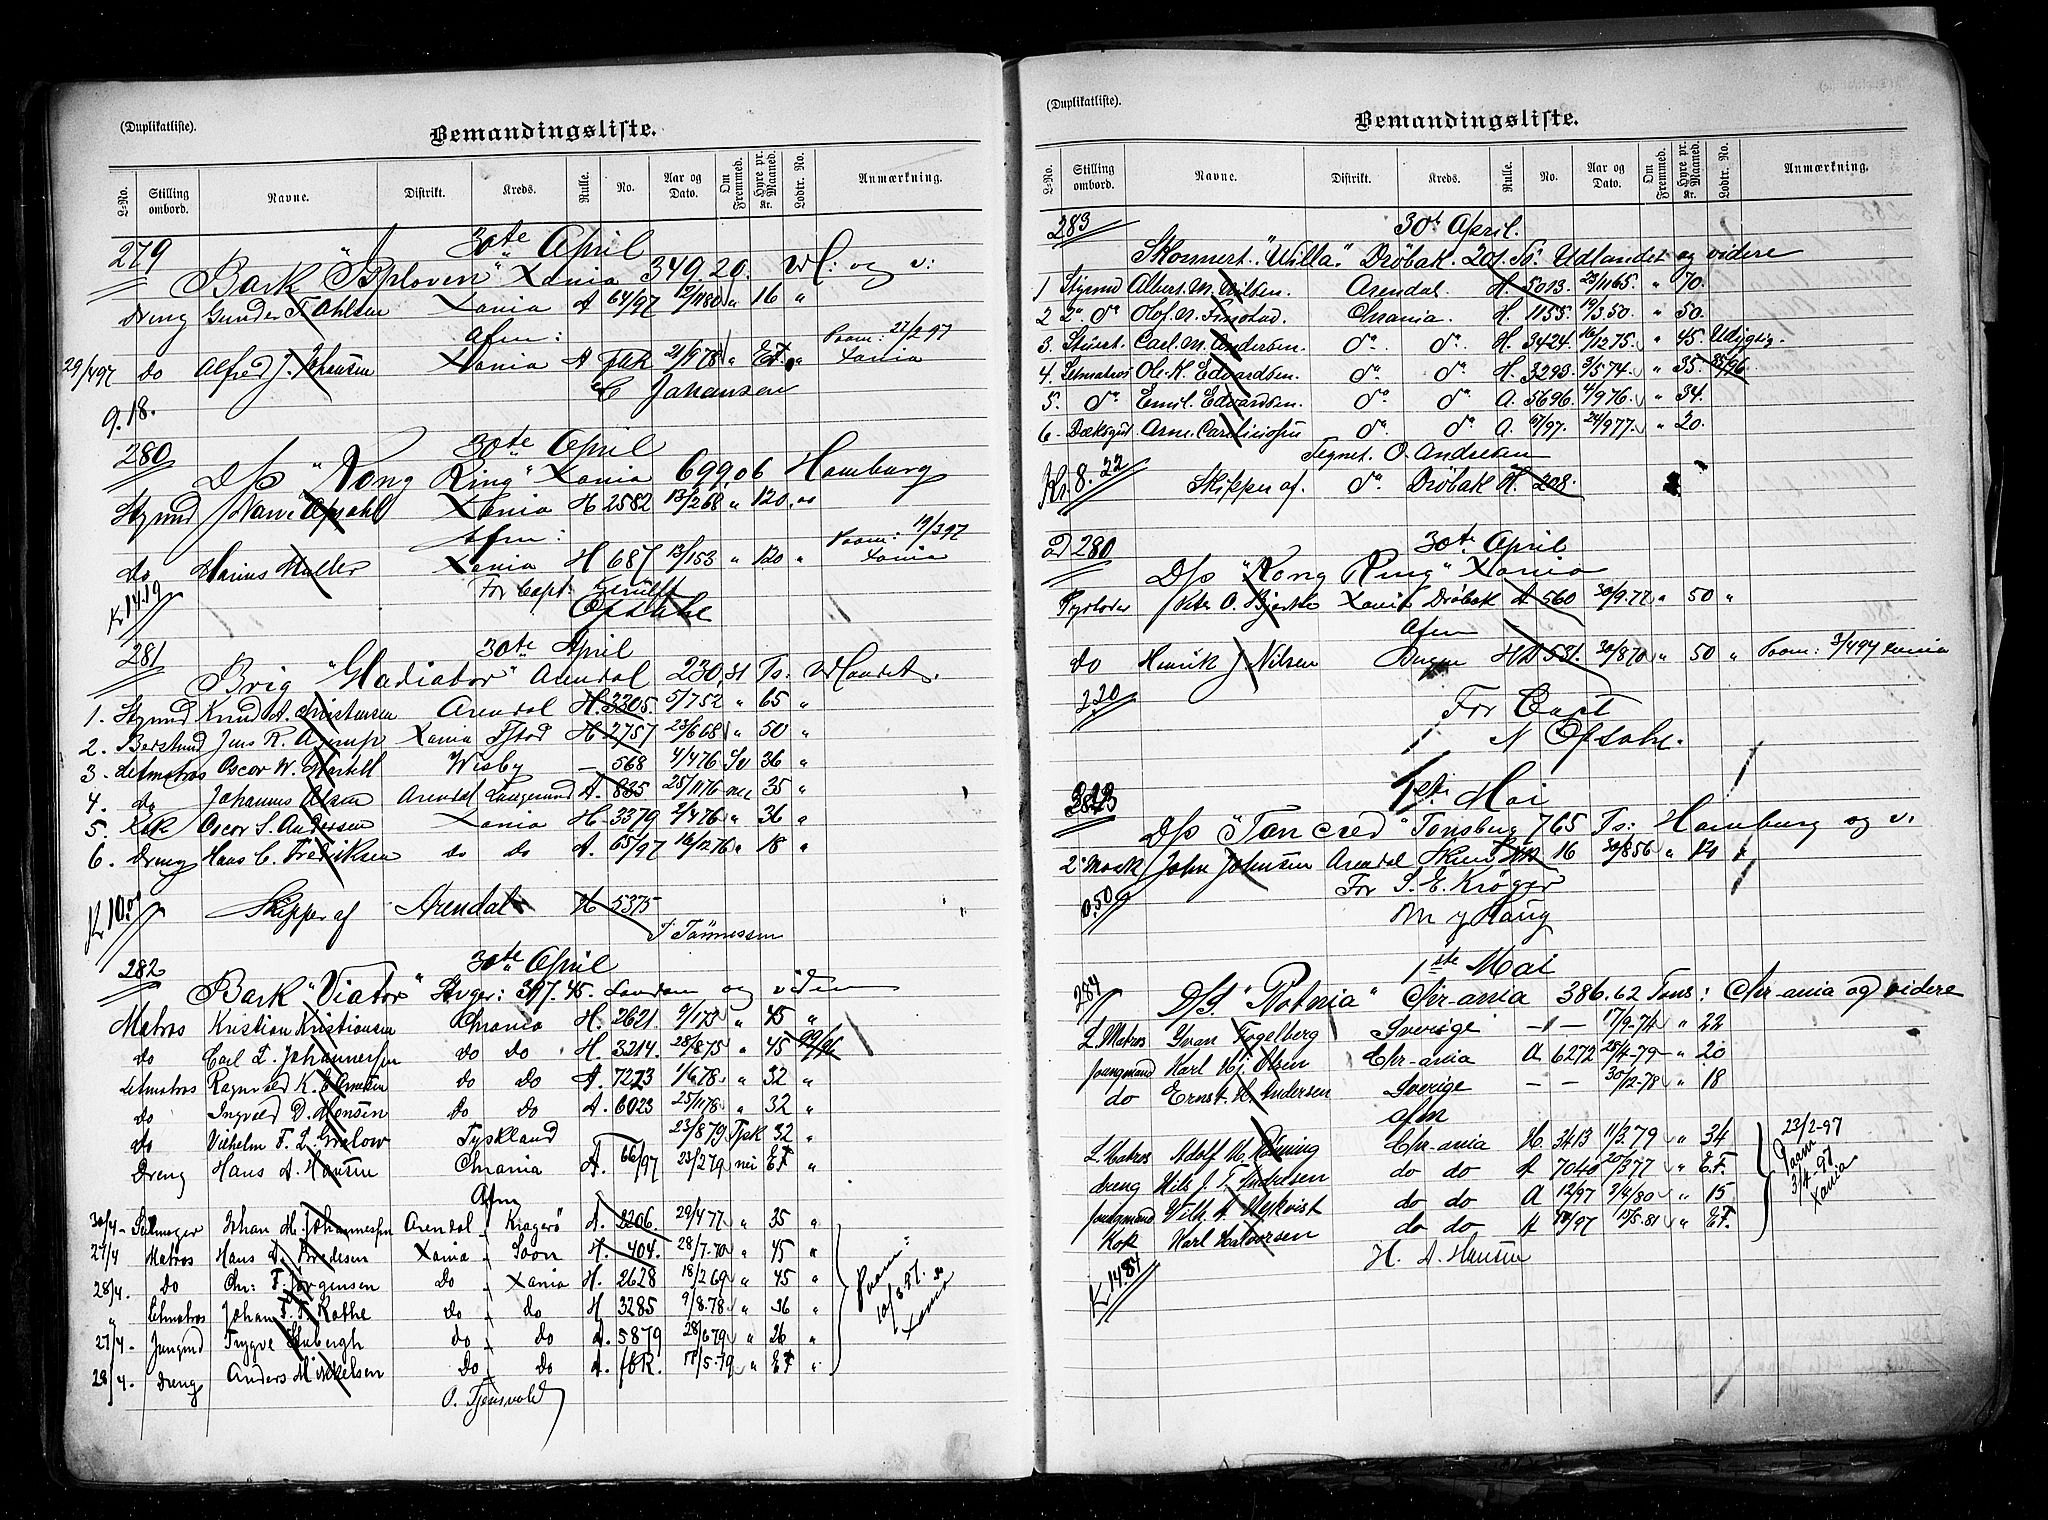 (Duplikatliste).
Bemandingsliste.
L-No. Stilling ombord. Navne. Distrikt. Kreds. Rulle. No. Aar og Dato. Om Fremmed. Hyre pr. Maaned. Kr. Lodtr. No. Anmærkning.
279 30te April
Bark Xania 349,20. og v:
Dreng Gunder T. Ohlsen Xania A 64/97 12/1180 " 16 "
Afm:
29/4 97 do Alfred J. Johansen Xania A 21/978 " EF. Paam: 27/2 97 Xania
C Johansen
9.18.
280 30te April
D/s "Kong Ring" Xania 699,06 Hamburg
Stymd Opsahl Xania H 2582 13/268 " 120 "
Afm: Paam: 19/3 97
do Marius Müller Xania H 687 13/153 " 120 " Xania
Kr 14.19 For Capt:
Opsahl
281 30te April
Brig "Gladiator" Arendal 230, Ts.
1. Stymd Knud A. Christensen Arendal H. 3305. 5/752 " 65 "
2. Jens R. Xania H 2757 23/668 " 50 "
3. Letmatros Oscar W. Wisby — 568 4/476 Sv 36 "
4. do Johannes Olsen Arendal A. 835 25/1176 nei 35 "
5. Kok Oscar S. Andersen Xania H. 3379 2/476 " 36 "
6. Dreng Hans C. Fredriksen do do A. 65/97 16/1276 " 18 "
Kr 10. Skipper af Arendal H 5375
T Tönnessen
282 30te April
Bark "Viator" 45. London og viden
Matros Kristian Kristiansen Chrania H. 2621 9/173 " 45 "
do Carl L. Johannessen do do H. 3214. 28/875 " 45 99/96
Letmatros Ragnvald K. do do A. 7273 1/678 " 32 "
do Ingvald D. Monsen do do A. 6023 25/1178 " 32 "
do Vilhelm F. L. Tyskland 23/879 Tysk 32 "
Dreng Hans A. Hansen Chrania A. 66/97 23/279 nei EF "
Afm
30/4 - Johan M. Johannessen Arendal - Kragerö A. 2206. 29/477 " 35 "
27/4 Matros Hans A. Bredesen Xania - Soon H. 404. 28/7.70 " 45 "
28/4. Do Chr: F. Jörgensen Do - Xania H. 2628 18/269 " 45 " Paam:
" Letmatros Johan F. F. Rathe do - do H 3285 9/8.78 " 36 " Xania
27/4. Jungmd Trygve do - do A. 5879 28/679 " 26 "
28/4. Dreng Anders Mikkelsen do - do A. 11/5.79 " EF "
O. Tjensvold
(Duplikatliste).
Bemandingsliste.
L-No. Stilling ombord. Navne. Distrikt. Kreds. Rulle. No. Aar og Dato. Om Fremmed. Hyre pr. Maaned. Kr. Lodtr. No. Anmærkning.
283 30te April.
Skonnert. "Willa." Dröbak. 201. To. Udlandet og videre
1 Styrmd Albert. M. Nilsen. Arendal. H. 5013. 23/1165. " 70.
2 2den do Olof. A. Chrania. H. 1155. 19/350. " 50.
3. Stuert. Carl. M. Andersen. do do H. 3424. 16/1275. " 45.
4. Letmatros Ole. K. Edvardsen. do do H. 3293. 3/574. " 35. 85/96.
5. do Emil. Edvardsen. do do A. 5696. 4/976. " 34.
6. Dæksgut Arne. do do A. 67/97. 24/977. " 20.
Kr. 8.22 Tegnet. O. Andresen
Skipper af. do Dröbak H. 208.
ad 280 30te April
D/s "Kong Ring" Xania
Fyrböder Peter O. Xania Dröbak A 560 30/9.77 " 50 "
Afm
do Henrik J Nilsen H 531. 30/870 " 50 " Paam: 3/4 97
2.20 For Capt
N Opsahl.
1ste Mai
D/s "Tancred" Tönsberg 765 Ts: Hamburg og v.
2. Mask John Johnsen Arendal 16 30/856 " 120
0.50 For S. E. Kröger
M y Haug
284 1ste Mai
D/S. "Rotnia" Chr-ania 386.62 Tons: Chr-ania og videre
L. Matros Ivan Fogelberg Sverige — — 17/9-74 " 22
Jungmand Karl Hj. Olsen Chr-ania A 6272 25/4-79 " 20
do Ernst. H. Andersen Sverige — — 30/12-78 " 18
Afm
L. Matros Adolf H. Rönning Chr-ania H 3413 11/3.79 " 34 23/2-97
dreng Nils J. F. Andresen do do A 7040 20/377 " E.F. Paam
Jungmand Vilh. A. Myhrvist do do A 12/97 2/4/80 " 15 3/4-97
Kok Karl Halvorsen do do A /97 15/5.81 " EF. Xania
H. A. Hansen
Kr 14 84